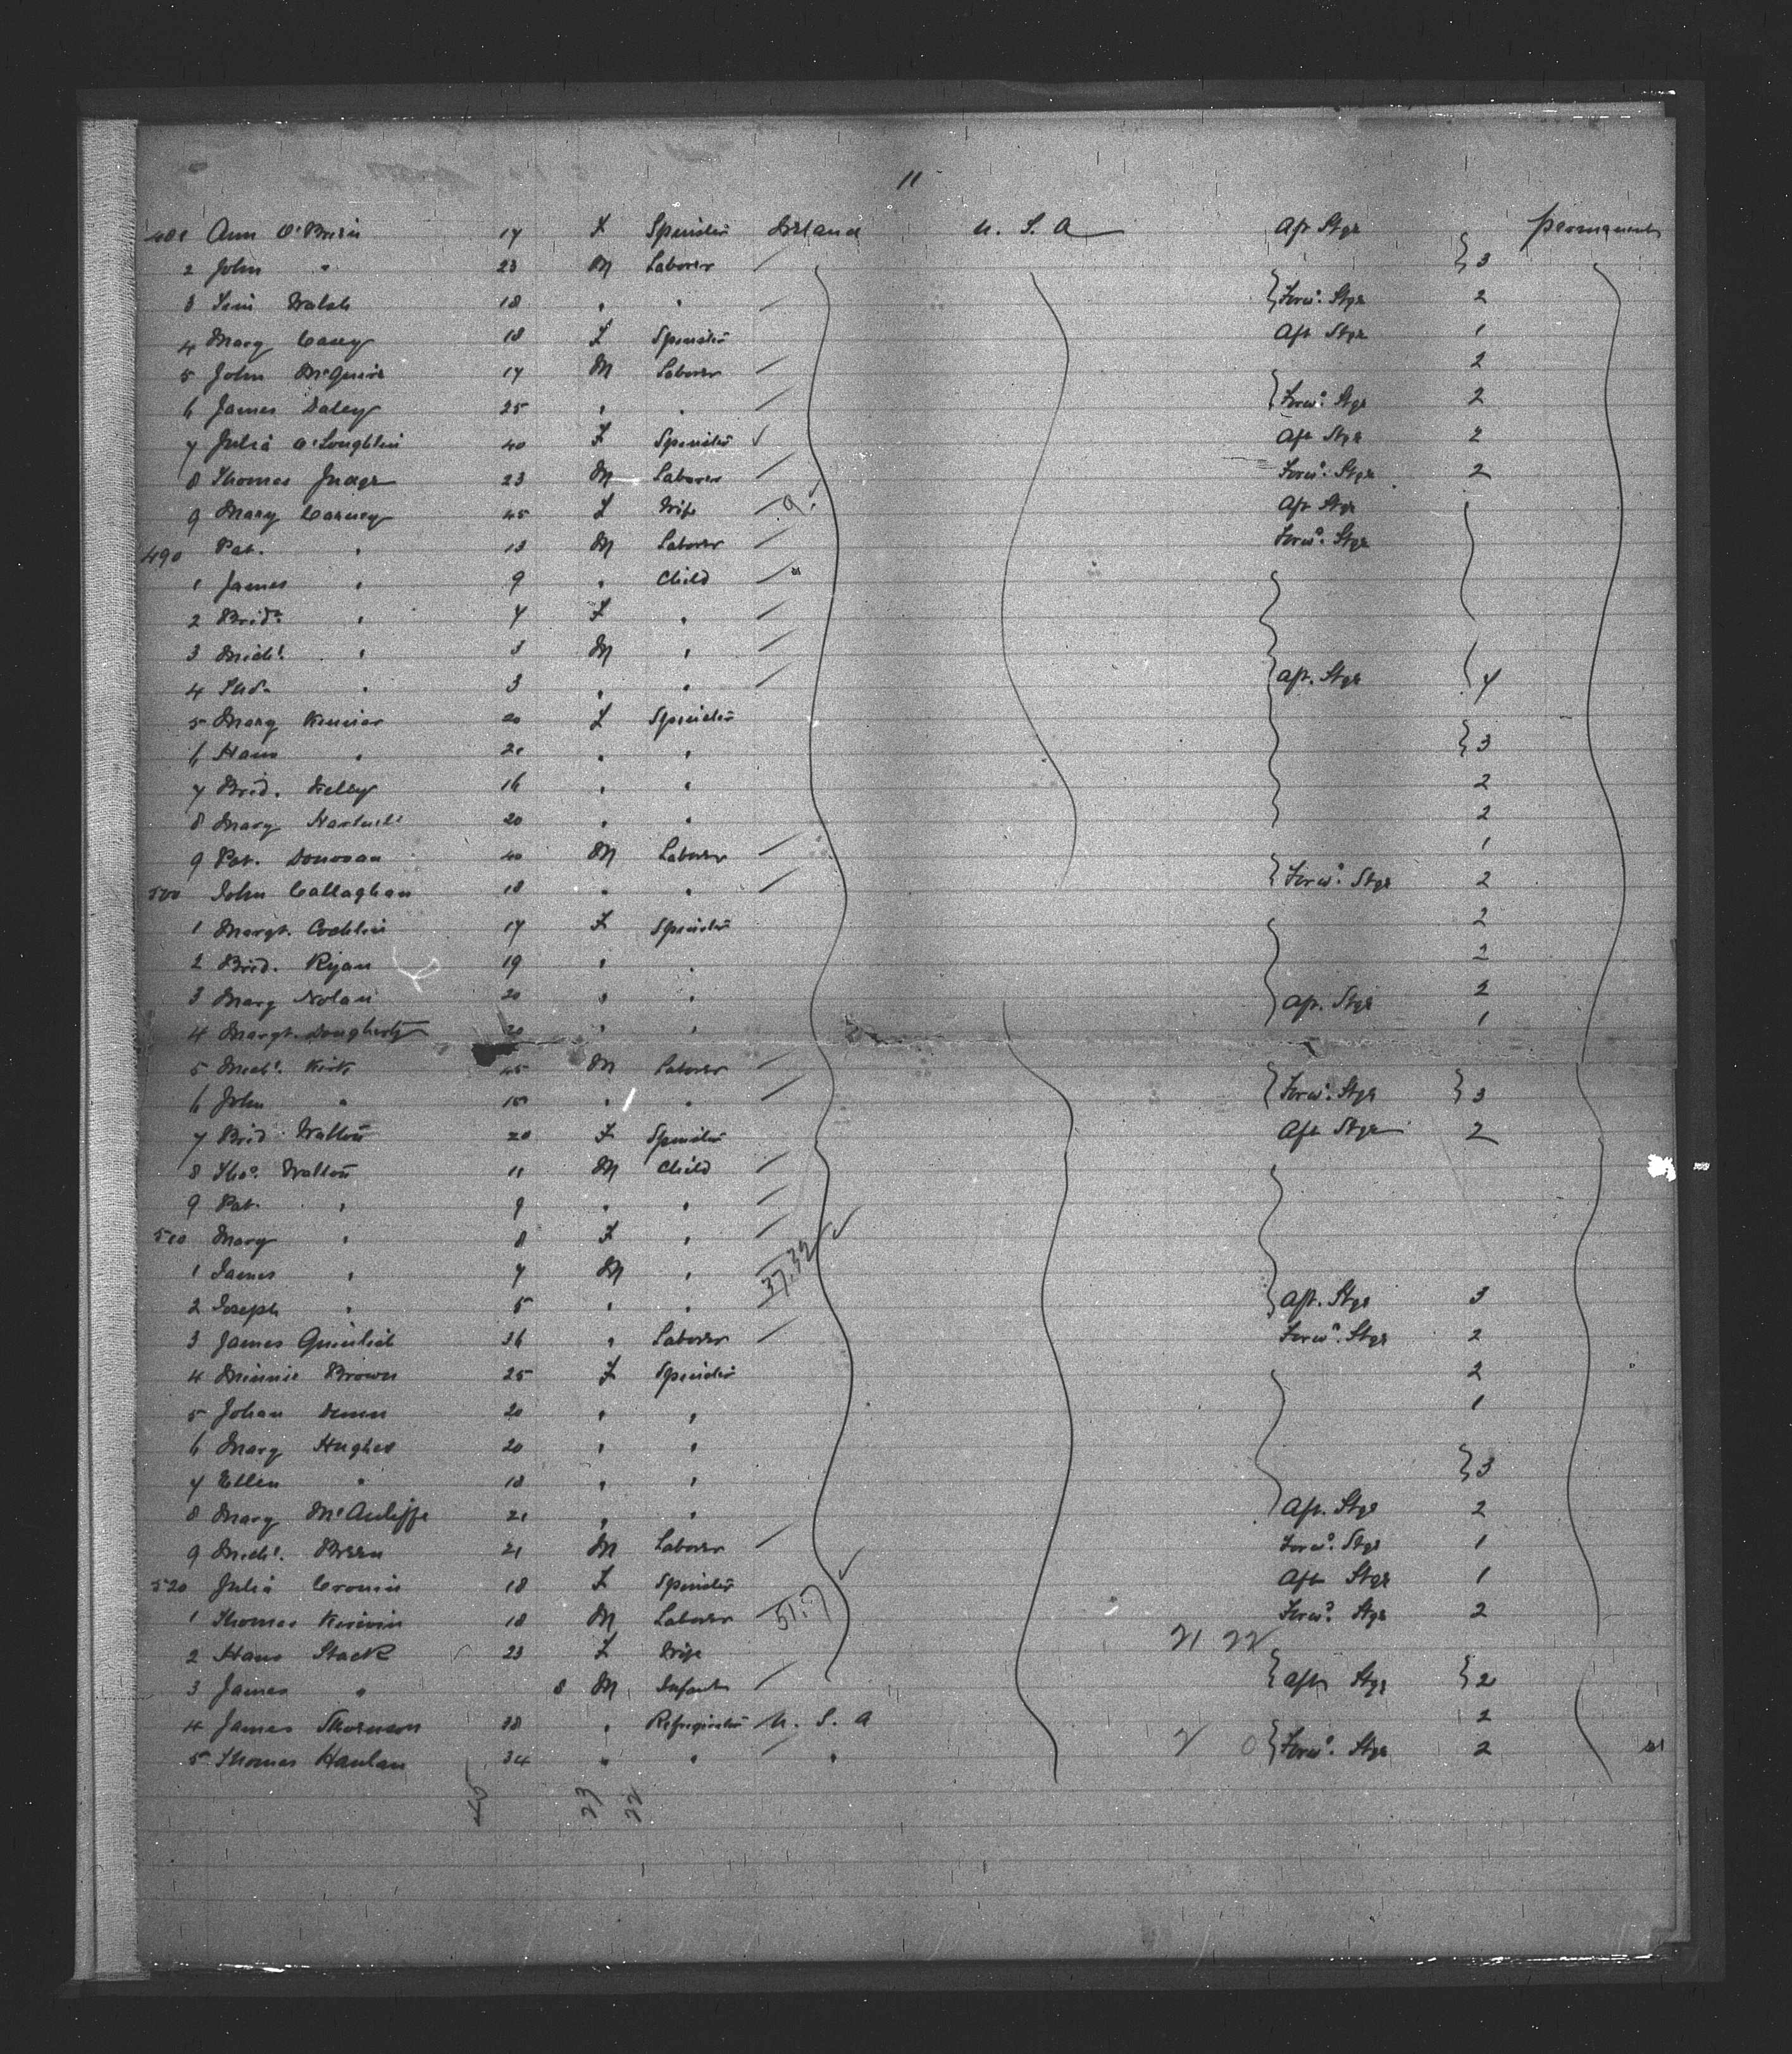 11
481 Ann O'Brien 17 F Spinster Ireland U. S. A Aft Stge permanent
2 John " 23 M Laborer } 3
3 Walsh 18 " " { Forwd. Stge 2
4 Mary Casey 18 F Spinster Aft Stge 1
5 John McGuire 17 M Laborer 2
6 James Daley 25 " " { Forwd. Stge 2
7 Julia O'Loughlin 40 F Spinster Aft Stge 2
8 Thomas Judge 23 M Laborer Forwd. Stge 2
9 Mary Carney 45 F Wife 9. Aft Stge
490 Pat. " 13 M Laborer Forwd. Stge
1 James " 9 " Child
2 Bridt " 7 F "
3 Michl. " 5 M "
4 " 3 " " Aft. Stge 7
5 Mary 20 F Spinster
6 " 21 " " } 3
7 Brid. Kelly 16 " " 2
8 Mary 20 " " 2
9 Pat. Donovan 40 M Laborer 1
500 John Callaghan 18 " " { Forwd. Stge 2
1 Margt. Cochlin 17 F Spinster 2
2 Brid. Ryan 19 " " 2
3 Mary Nolan 20 " " Aft. Stge 2
4 Margt. Dougherty 20 " " 1
5 Michl. Kirk 45 M Laborer
6 John " 15 " " { Forwd. Stge } 3
7 Brid Walton 20 F Spinster Aft Stge 2
8 Thos. Walton 11 M Child
9 Pat. " 9 " "
510 Mary " 8 F "
1 James " 7 M " 37.32
2 Joseph " 5 " " Aft. Stge 3
3 James 36 " Laborer Forwd. Stge 2
4 Minnie Brown 25 F Spinster 2
5 Johan 20 " " 1
6 Mary Hughes 20 " "
7 Ellen " 18 " " } 3
8 Mary McAuliffe 21 " " Aft. Stge 2
9 Michl. Breen 21 M Laborer Forwd. Stge 1
520 Julia Cronin 18 F Spinster Aft Stge 1
1 Thomas 18 M Laborer Forwd. Stge 2
21 22
2 Stack 23 F Wife
3 James " 8 M Infant { Aft Stge } 2
4 James 38 " U. S. A 2
5 Thomas Hanlan 34 " " " 2 0 { Forwd. Stge 2
45 23 22